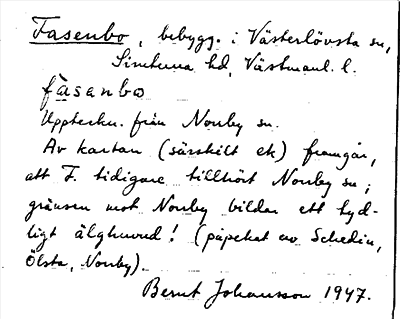 Fasenbo, bebygg. i Västerlövsta sn,
Simtuna hd, Västmanl. l.
fàsenbω
Uppteckn. från Norrby sn.
Av kartan (särskilt ek) framgår,
att F. tidigare tillhört Norrby sn;
gränsen mot Norrby bildar ett tyd-
ligt älghuvud! (påpekat av Schedin,
Ölsta, Norrby).
Bernt Johansson 1947.